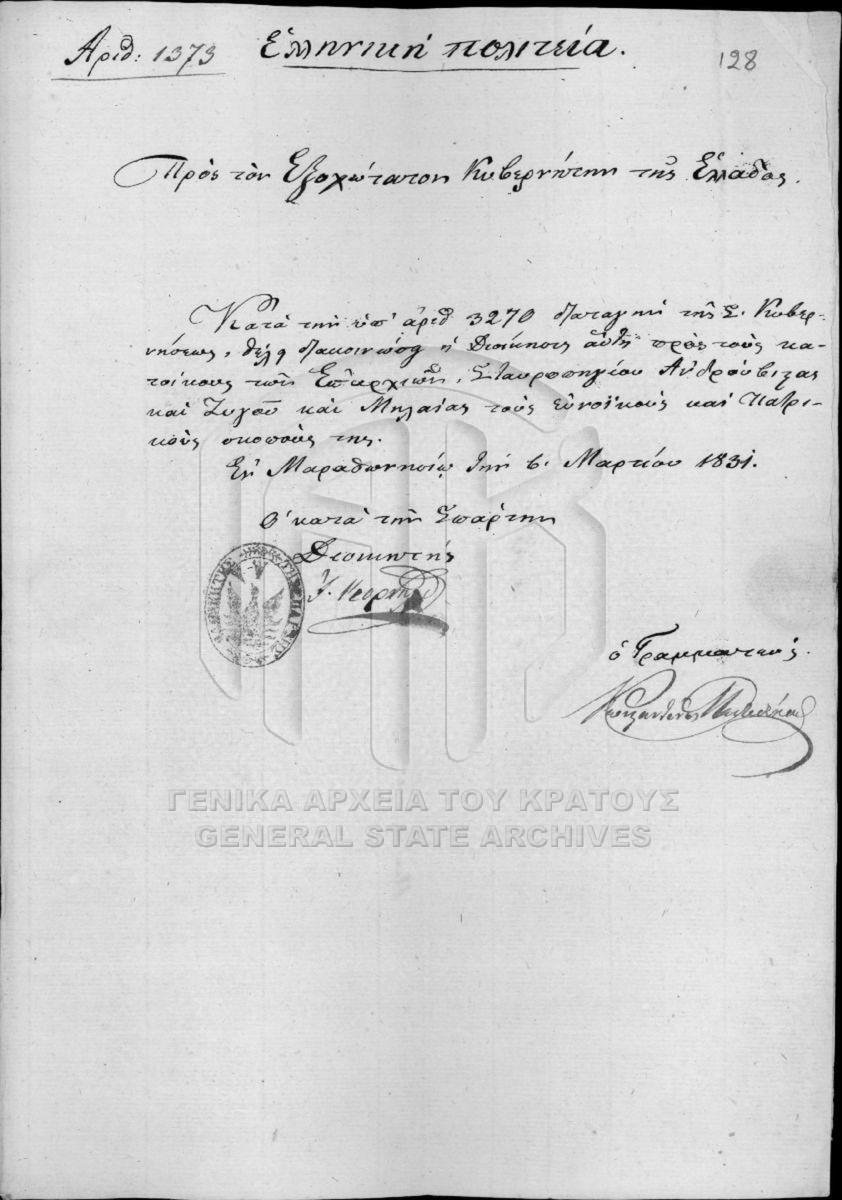 Ἀριθ: 1373 Ἑλληνικὴ πολιτεία.
128
Πρὸς τὸν Ἐξοχώτατον Κυβερνήτην τῆς Ἑλλάδος.
Κατὰ τὴν ὑπ' ἀριθ 3270 διαταγὴν τῆς Σ. Κυβερ-
νήσεως, θέλῃ διακοινώσῃ ἡ Διοίκησις αὕτη πρὸς τοὺς κα-
τοίκους τῶν Ἐπαρχιῶν, Σταυροπηγίου Ἀνδρούβιζας
καὶ Ζυγοῦ καὶ Μηλαίας τοὺς εὐνοϊκοὺς καὶ πατρι-
κοὺς σκοποὺς της.
Ἐν Μαραθωνησίῳ τὴν 6. Μαρτίου 1831.
Ὁ κατὰ τὴν Σπάρτην
Διοικητὴς
ὁ Γραμματεὺς.
Κωνσταντῖνος
ΓΕΝΙΚΑ ΑΡΧΕΙΑ ΤΟΥ ΚΡΑΤΟΥΣ
GENERAL STATE ARCHIVES